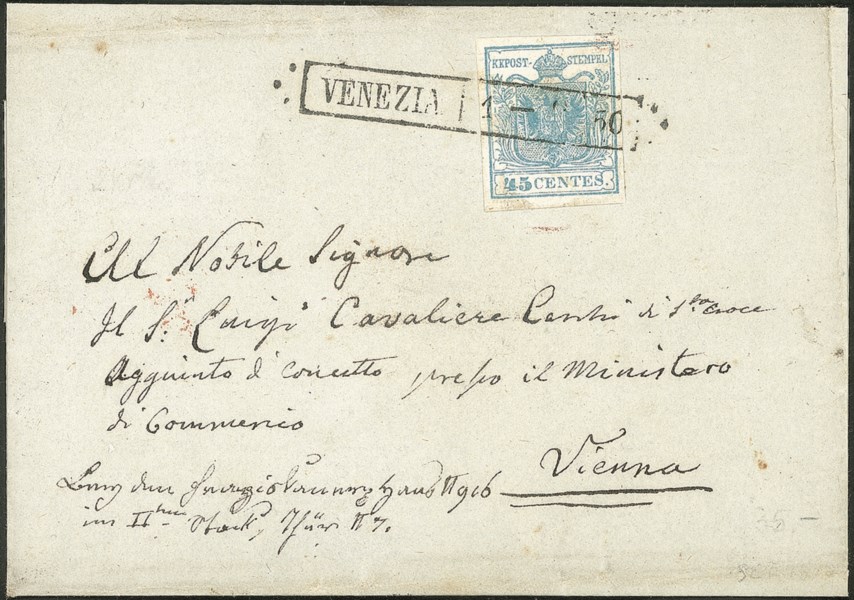 VENEZIA 1 – 50
KKPOST-STEMPEL
45 CENTES.
All Nobile Signore
Il S.r Luigi Cavaliere di S.ta Croce
Aggiunto di concetto presso il Ministero
di Commercio
Vienna
Haus N 916
im II Stock, Thür N 7.
35 –